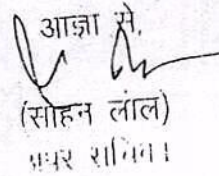 आज्ञा से,
(सोहन लाल)
अपर सचिव।